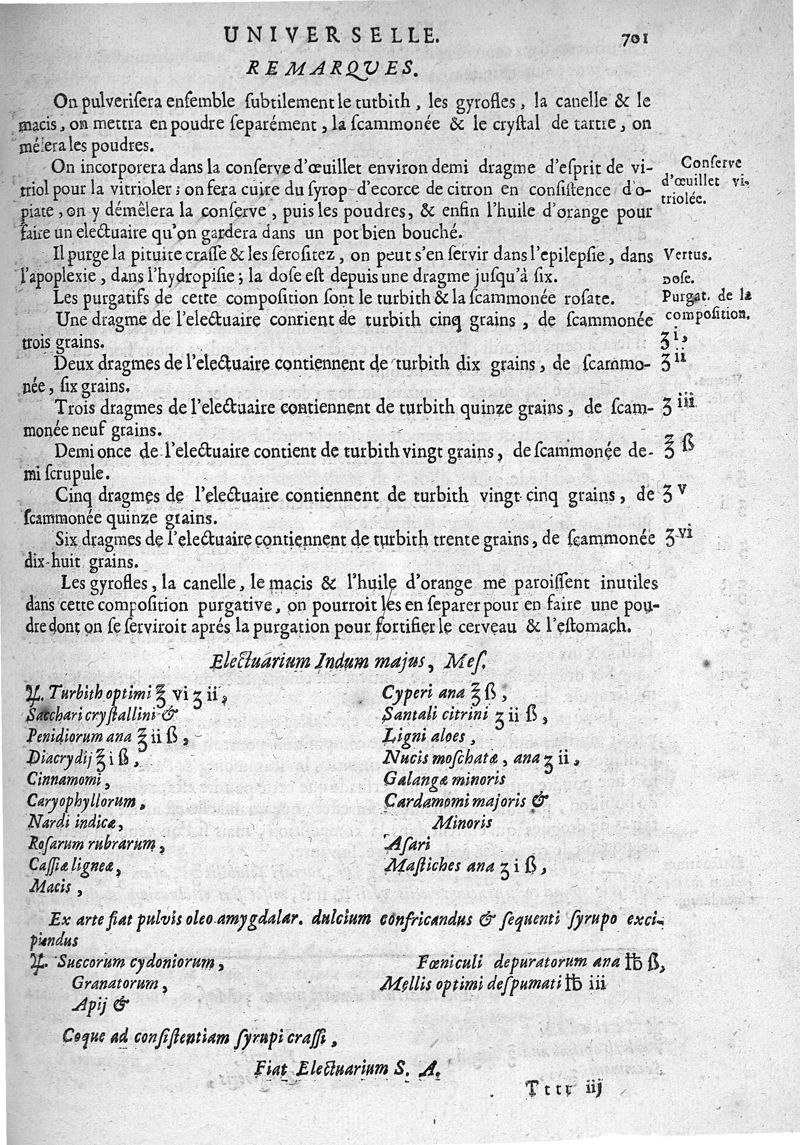 UNIVERSELLE. 701
REMARQUES.
On pulveriſera enſemble ſubtilement le turbith, les gyrofles, la canelle & le
macis, on mettra en poudre ſeparément, la ſcammonée & le cryſtal de tartre, on
mélera les poudres.
On incorporera dans la conſerve d'œuillet environ demi dragme d'eſprit de vi-
triol pour la vitrioler; on fera cuire du ſyrop d'ecorce de citron en conſiſtence d'o-
piate, on y démêlera la conſerve, puis les poudres, & enfin l'huile d'orange pour
faire un electuaire qu'on gardera dans un pot bien bouché.
Conſerve
d'œuillet vi-
triolée.
Il purge la pituite craſſe & les ſeroſitez, on peut s'en ſervir dans l'epilepſie, dans
l'apoplexie, dans l'hydropiſie; la doſe eſt depuis une dragme juſqu'à ſix.
Vertus.
Doſe.
Les purgatifs de cette compoſition ſont le turbith & la ſcammonée roſate.
Purgat. de la
compoſition.
Une dragme de l'electuaire contient de turbith cinq grains, de ſcammonée
trois grains.
ʒ i,
Deux dragmes de l'electuaire contiennent de turbith dix grains, de ſcammo-
née, ſix grains.
ʒ ii
Trois dragmes de l'electuaire contiennent de turbith quinze grains, de ſcam-
monée neuf grains.
ʒ iii
Demi once de l'electuaire contient de turbith vingt grains, de ſcammonée de-
mi ſcrupule.
℥ ß
Cinq dragmes de l'electuaire contiennent de turbith vingt-cinq grains, de
ſcammonée quinze grains.
ʒ v
Six dragmes de l'electuaire contiennent de turbith trente grains, de ſcammonée
dix-huit grains.
ʒ vi
Les gyrofles, la canelle, le macis & l'huile d'orange me paroiſſent inutiles
dans cette compoſition purgative, on pourroit les en ſeparer pour en faire une pou-
dre dont on ſe ſerviroit aprés la purgation pour fortifier le cerveau & l'eſtomach.
Electuarium Indum majus, Meſ.
♃. Turbith optimi ℥ vi ʒ ii,
Sacchari cryſtallini &
Penidiorum ana ℥ ii ß,
Diacrydij ℥ i ß,
Cinnamomi,
Caryophyllorum,
Nardi indicæ,
Roſarum rubrarum,
Caſſiæ ligneæ,
Macis,
Cyperi ana ℥ ß,
Santali citrini ʒ ii ß,
Ligni aloes,
Nucis moſchatæ, ana ʒ ii,
Galangæ minoris
Cardamomi majoris &
Minoris
Aſari
Maſtiches ana ʒ i ß,
Ex arte fiat pulvis oleo amygdalar. dulcium confricandus & ſequenti ſyrupo exci-
piendus
♃. Succorum cydoniorum,
Granatorum,
Apij &
Fœniculi depuratorum ana ℔ ß,
Mellis optimi deſpumati ℔ iii
Coque ad conſiſtentiam ſyrupi craſſi,
Fiat Electuarium S. A.
Tttt iij